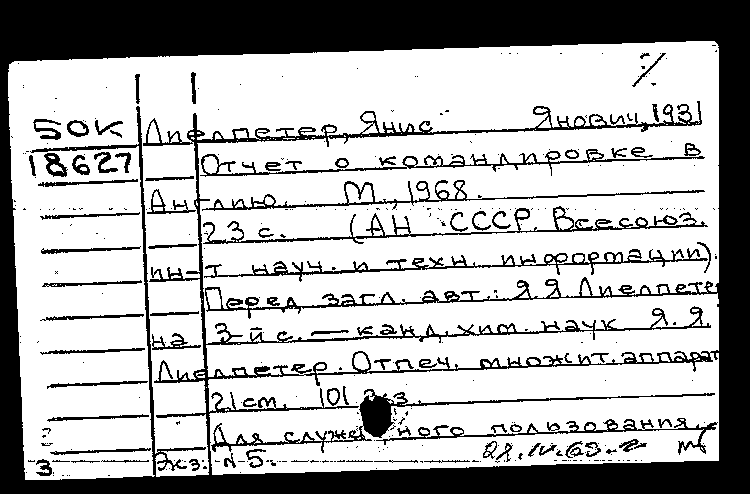 50К Лиелпетер, Янис Янович, 1931
18627 Отчет о командировке в
Англию. М., 1968.
23 с. (АН СССР. Всесоюз.
ин-т науч. и техн. информации).
Перед загл. авт.: Я.Я. Лиелпетер
на 3-й с. — канд. хим. наук Я.Я.
Лиелпетер. Отпеч. множит. аппарат
21 см. 101 экз.
Для служебного пользования.
Экз. N 5.
3